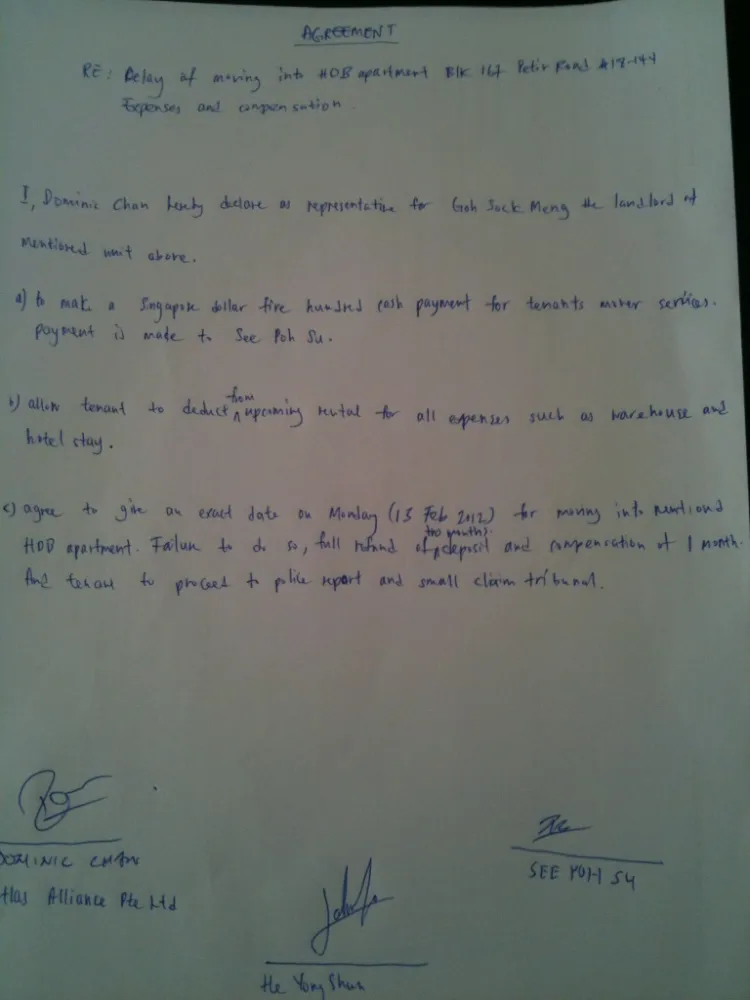 AGREEMENT
RE: Delay of moving into HDB apartment Blk 167 Petir Road #18-144
Expenses and compensation.
I, Dominic Chan hereby declare as representative for Goh Sock Meng the landlord of
mentioned unit above.
a) to make a Singapore dollar five hundred cash payment for tenants mover services.
payment is made to See Poh Su.
from
b) allow tenant to deduct ^ upcoming rental for all expenses such as warehouse and
hotel stay.
c) agree to give an exact date on Monday (13 Feb 2012) for moving into mentioned
two months
HDB apartment. Failure to do so, full refund of ^ deposit and compensation of 1 month.
And tenant to proceed to police report and small claim tribunal.
DOMINIC CHAN
tlas Alliance Pte Ltd
SEE POH SU
He Yong Shun